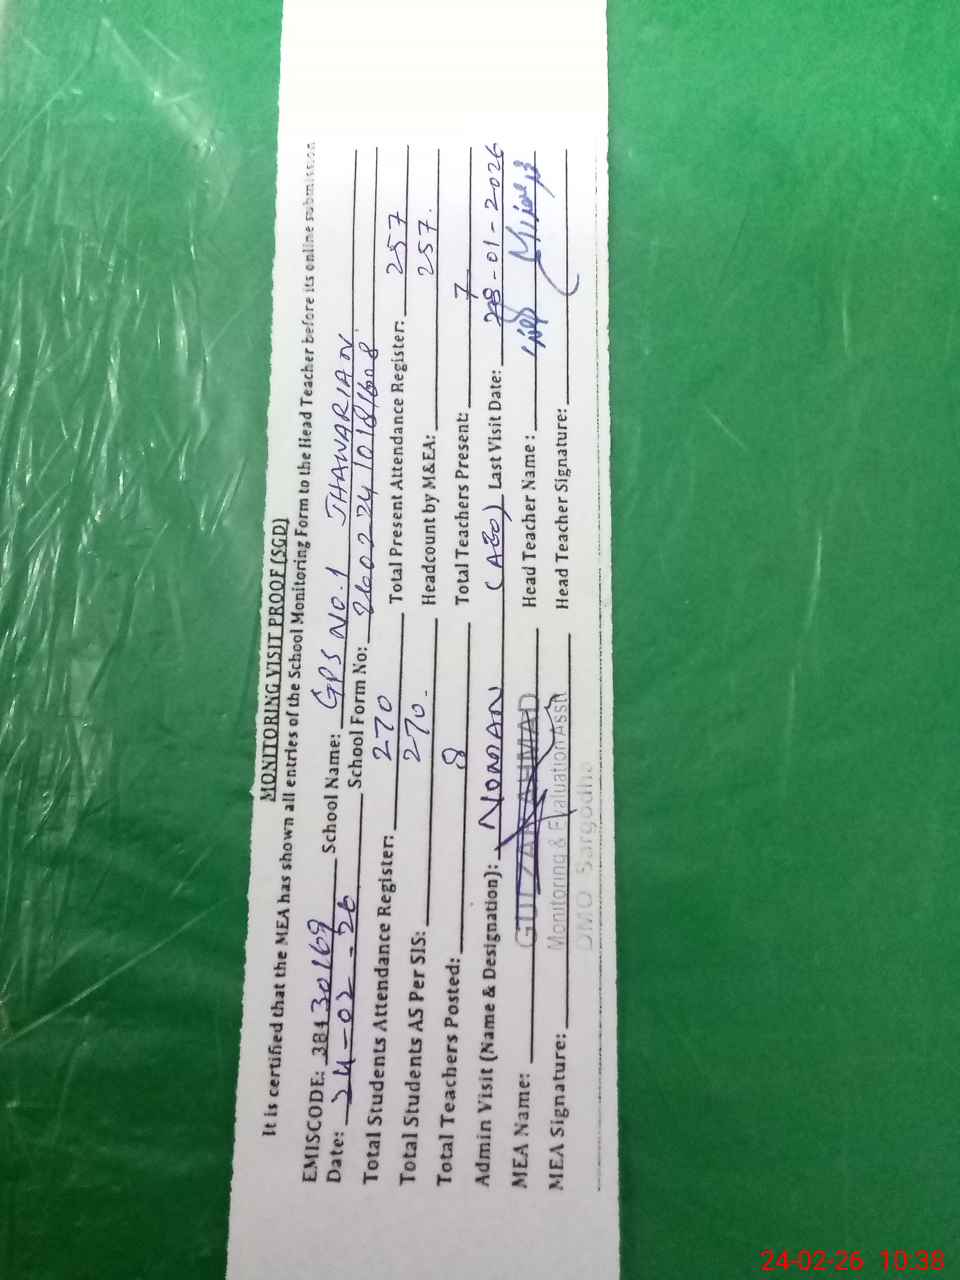 MONITORING VISIT PROOF (SGD)
It is certified that the MEA has shown all entries of the School Monitoring Form to the Head Teacher before its online submission
EMISCODE: 38430169 School Name: GPS NO.1 JHAWARIAN
Date: 24-02-26 School Form No:
Total Students Attendance Register: 270 Total Present Attendance Register: 257
Total Students AS Per SIS: 270. Headcount by M&EA: 257.
Total Teachers Posted: 8 Total Teachers Present: 7
Admin Visit (Name & Designation): NOMAN (AEO) Last Visit Date: 28-01-2026
MEA Name: GULZAR AHMAD Head Teacher Name:
MEA Signature: Monitoring & Evaluation Asstt Head Teacher Signature:
DMO Sargodha
24-02-26 10:38